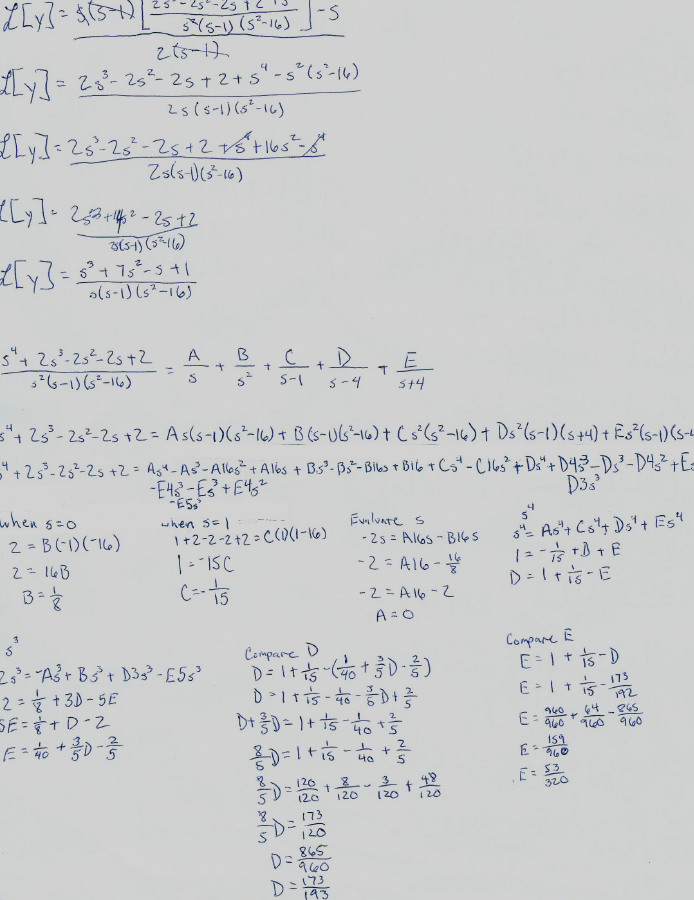 ℒ[y] = s(s-1) [ (2s³-2s²-2s+2 / s²(s-1)(s²-16) ] - s / 2(s-1)
ℒ[y] = 2s³-2s²-2s+2+s⁴-s²(s²-16) / 2s(s-1)(s²-16)
ℒ[y] = 2s³-2s²-2s+2+s⁴+16s²-s⁴ / 2s(s-1)(s²-16)
ℒ[y] = 2s³+14s²-2s+2 / 2s(s-1)(s²-16)
ℒ[y] = s³+7s²-s+1 / s(s-1)(s²-16)
s⁴+2s³-2s²-2s+2 / s²(s-1)(s²-16) = A/s + B/s² + C/s-1 + D/s-4 + E/s+4
s⁴+2s³-2s²-2s+2 = As(s-1)(s²-16)+B(s-1)(s²-16)+Cs²(s²-16)+Ds²(s-1)(s+4)+Es²(s-1)(s-4
s⁴+2s³-2s²-2s+2 = As⁴-As³-A16s²+A16s+Bs³-Bs²-B16s+B16+Cs⁴-C16s²+Ds⁴+D4s³-Ds³-D4s²+Es
-E4s³-Es³+E4s²
-E5s³
D3s³
when s=0
2 = B(-1)(-16)
2 = 16B
B = 1/8
when s=1
1+2-2-2+2=C(1)(1-16)
1=-15C
C=-1/15
Evaluate s
-2s = A16s-B16s
-2=A16-16/8
-2=A16-2
A=0
s⁴
s⁴=As⁴+Cs⁴+Ds⁴+Es⁴
1=-1/15+D+E
D=1+1/15-E
s³
2s³=-As³+Bs³+D3s³-E5s³
2=1/8+3D-5E
5E=1/8+D-2
E=1/40+3/5D-2/5
Compare D
D=1+1/15-(1/40+3/5D-2/5)
D=1+1/15-1/40-3/5D+2/5
D+3/5D=1+1/15-1/40+2/5
8/5D=1+1/15-1/40+2/5
8/5D=120/120+8/120-3/120+48/120
8/5D=173/120
D=865/960
D=173/193
Compare E
E=1+1/15-D
E=1+1/15-173/192
E=960/960+64/960-865/960
E=159/960
E=53/320